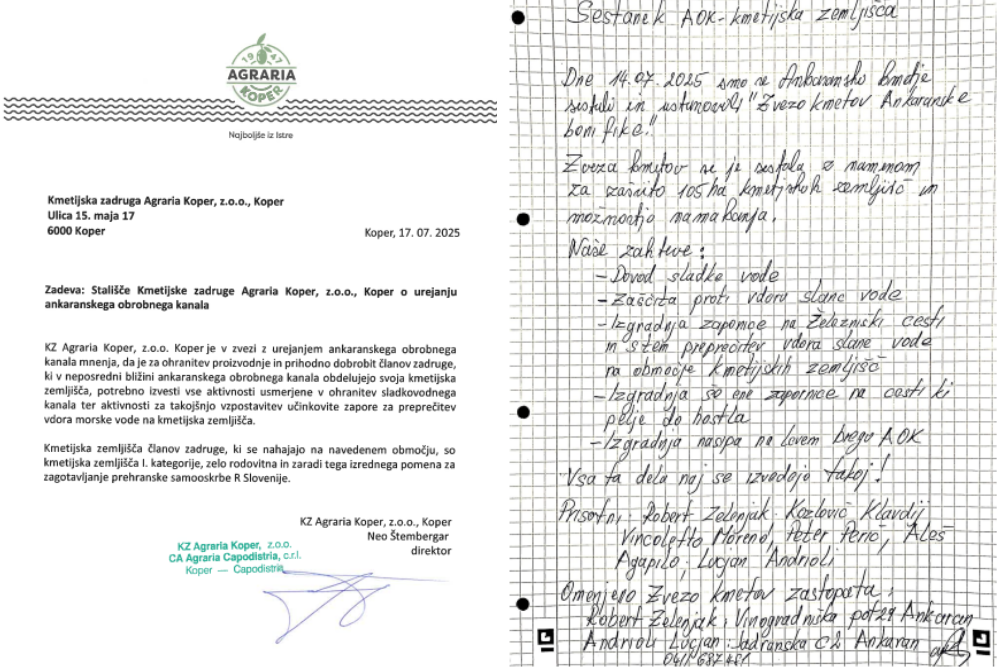 1947
AGRARIA
KOPER
Najboljše iz Istre
Kmetijska zadruga Agraria Koper, z.o.o., Koper
Ulica 15. maja 17
6000 Koper
Koper, 17. 07. 2025
Zadeva: Stališče Kmetijske zadruge Agraria Koper, z.o.o., Koper o urejanju
ankaranskega obrobnega kanala
KZ Agraria Koper, z.o.o. Koper je v zvezi z urejanjem ankaranskega obrobnega
kanala mnenja, da je za ohranitev proizvodnje in prihodno dobrobit članov zadruge,
ki v neposredni bližini ankaranskega obrobnega kanala obdelujejo svoja kmetijska
zemljišča, potrebno izvesti vse aktivnosti usmerjene v ohranitev sladkovodnega
kanala ter aktivnosti za takojšnjo vzpostavitev učinkovite zapore za preprečitev
vdora morske vode na kmetijska zemljišča.
Kmetijska zemljišča članov zadruge, ki se nahajajo na navedenem območju, so
kmetijska zemljišča I. kategorije, zelo rodovitna in zaradi tega izrednega pomena za
zagotavljanje prehranske samooskrbe R Slovenije.
KZ Agraria Koper, z.o.o., Koper
Neo Štembergar
direktor
KZ Agraria Koper, z.o.o.
CA Agraria Capodistria, c.r.l.
Koper — Capodistria
Sestanek AOK-kmetijska zemljišča
Dne 14.07.2025 smo se Ankaransko kmetje
sestali in ustanovili "Zvezo kmetov Ankaranske
bonifike."
Zveza kmetov se je sestala z namenom
za zaščito 105ha kmetijskih zemljišč in
možnostjo namakanja.
Naše zahteve:
- Dovod sladke vode
- Zaščita proti vdoru slane vode
- Izgradnja zapornice na Železniški cesti
in s tem preprečitev vdora slane vode
na območje kmetijskih zemljišč
- Izgradnja še ene zapornice na cesti ki
pelje do hostla
- Izgradnja nasipa na levem bregu AOK
Vsa ta dela naj se izvedejo takoj!
Prisotni: Robert Zelenjak, Kozlovič Klavdij
Vincoletto Moreno, Peter Perič, Aleš
Agapito, Lucjan Andrioli
Omenjeno Zvezo kmetov zastopata:
Robert Zelenjak, Vinogradniška pot 29 Ankaran
Andrioli Lucjan: Jadranska c 2 Ankaran